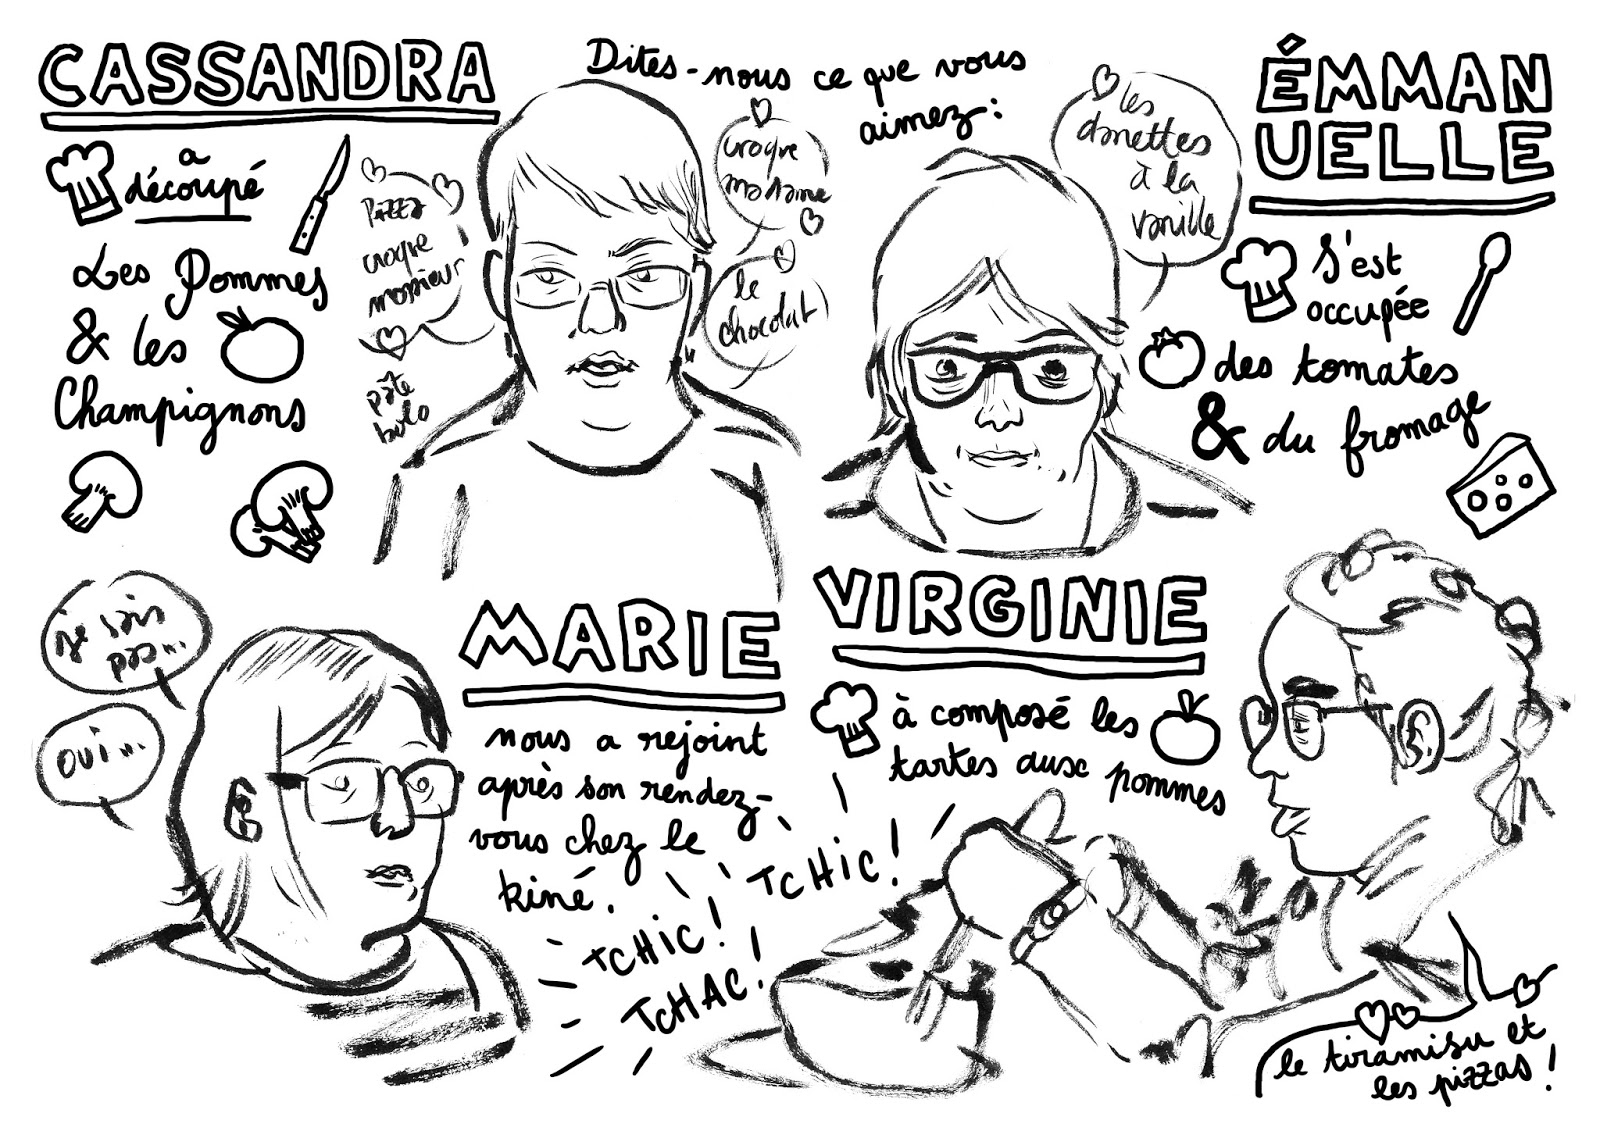 CASSANDRA
a
découpé
Les Pommes
& les
Champignons
Dites-nous ce que vous
aimez:
Pizza
croque
monsieur
pâte
bolo
croque
madame
le
chocolat
les
danettes
à la
vanille
ÉMMAN
UELLE
S'est
occupée
des tomates
& du fromage
je sais
pas...
oui...
MARIE
nous a rejoint
après son rendez-
vous chez le
kiné.
VIRGINIE
à composé les
tartes ausc pommes
TCHIC!
TCHIC!
TCHAC!
le tiramisu et
les pizzas!